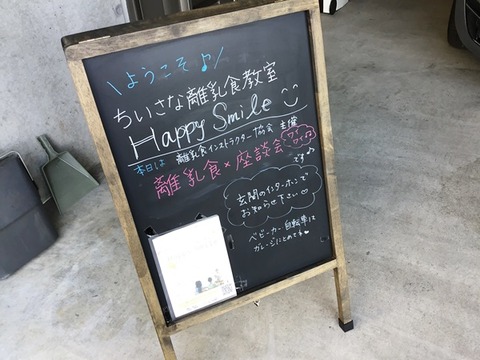 ようこそ♪
ちいさな離乳食教室
Happy Smile
離乳食インストラクター協会 主催
本日は
離乳食×座談会
ワイワイ
です♪
玄関のインターホンで
お知らせ下さい
ベビーカー 自転車は
ガレージにとめてネ